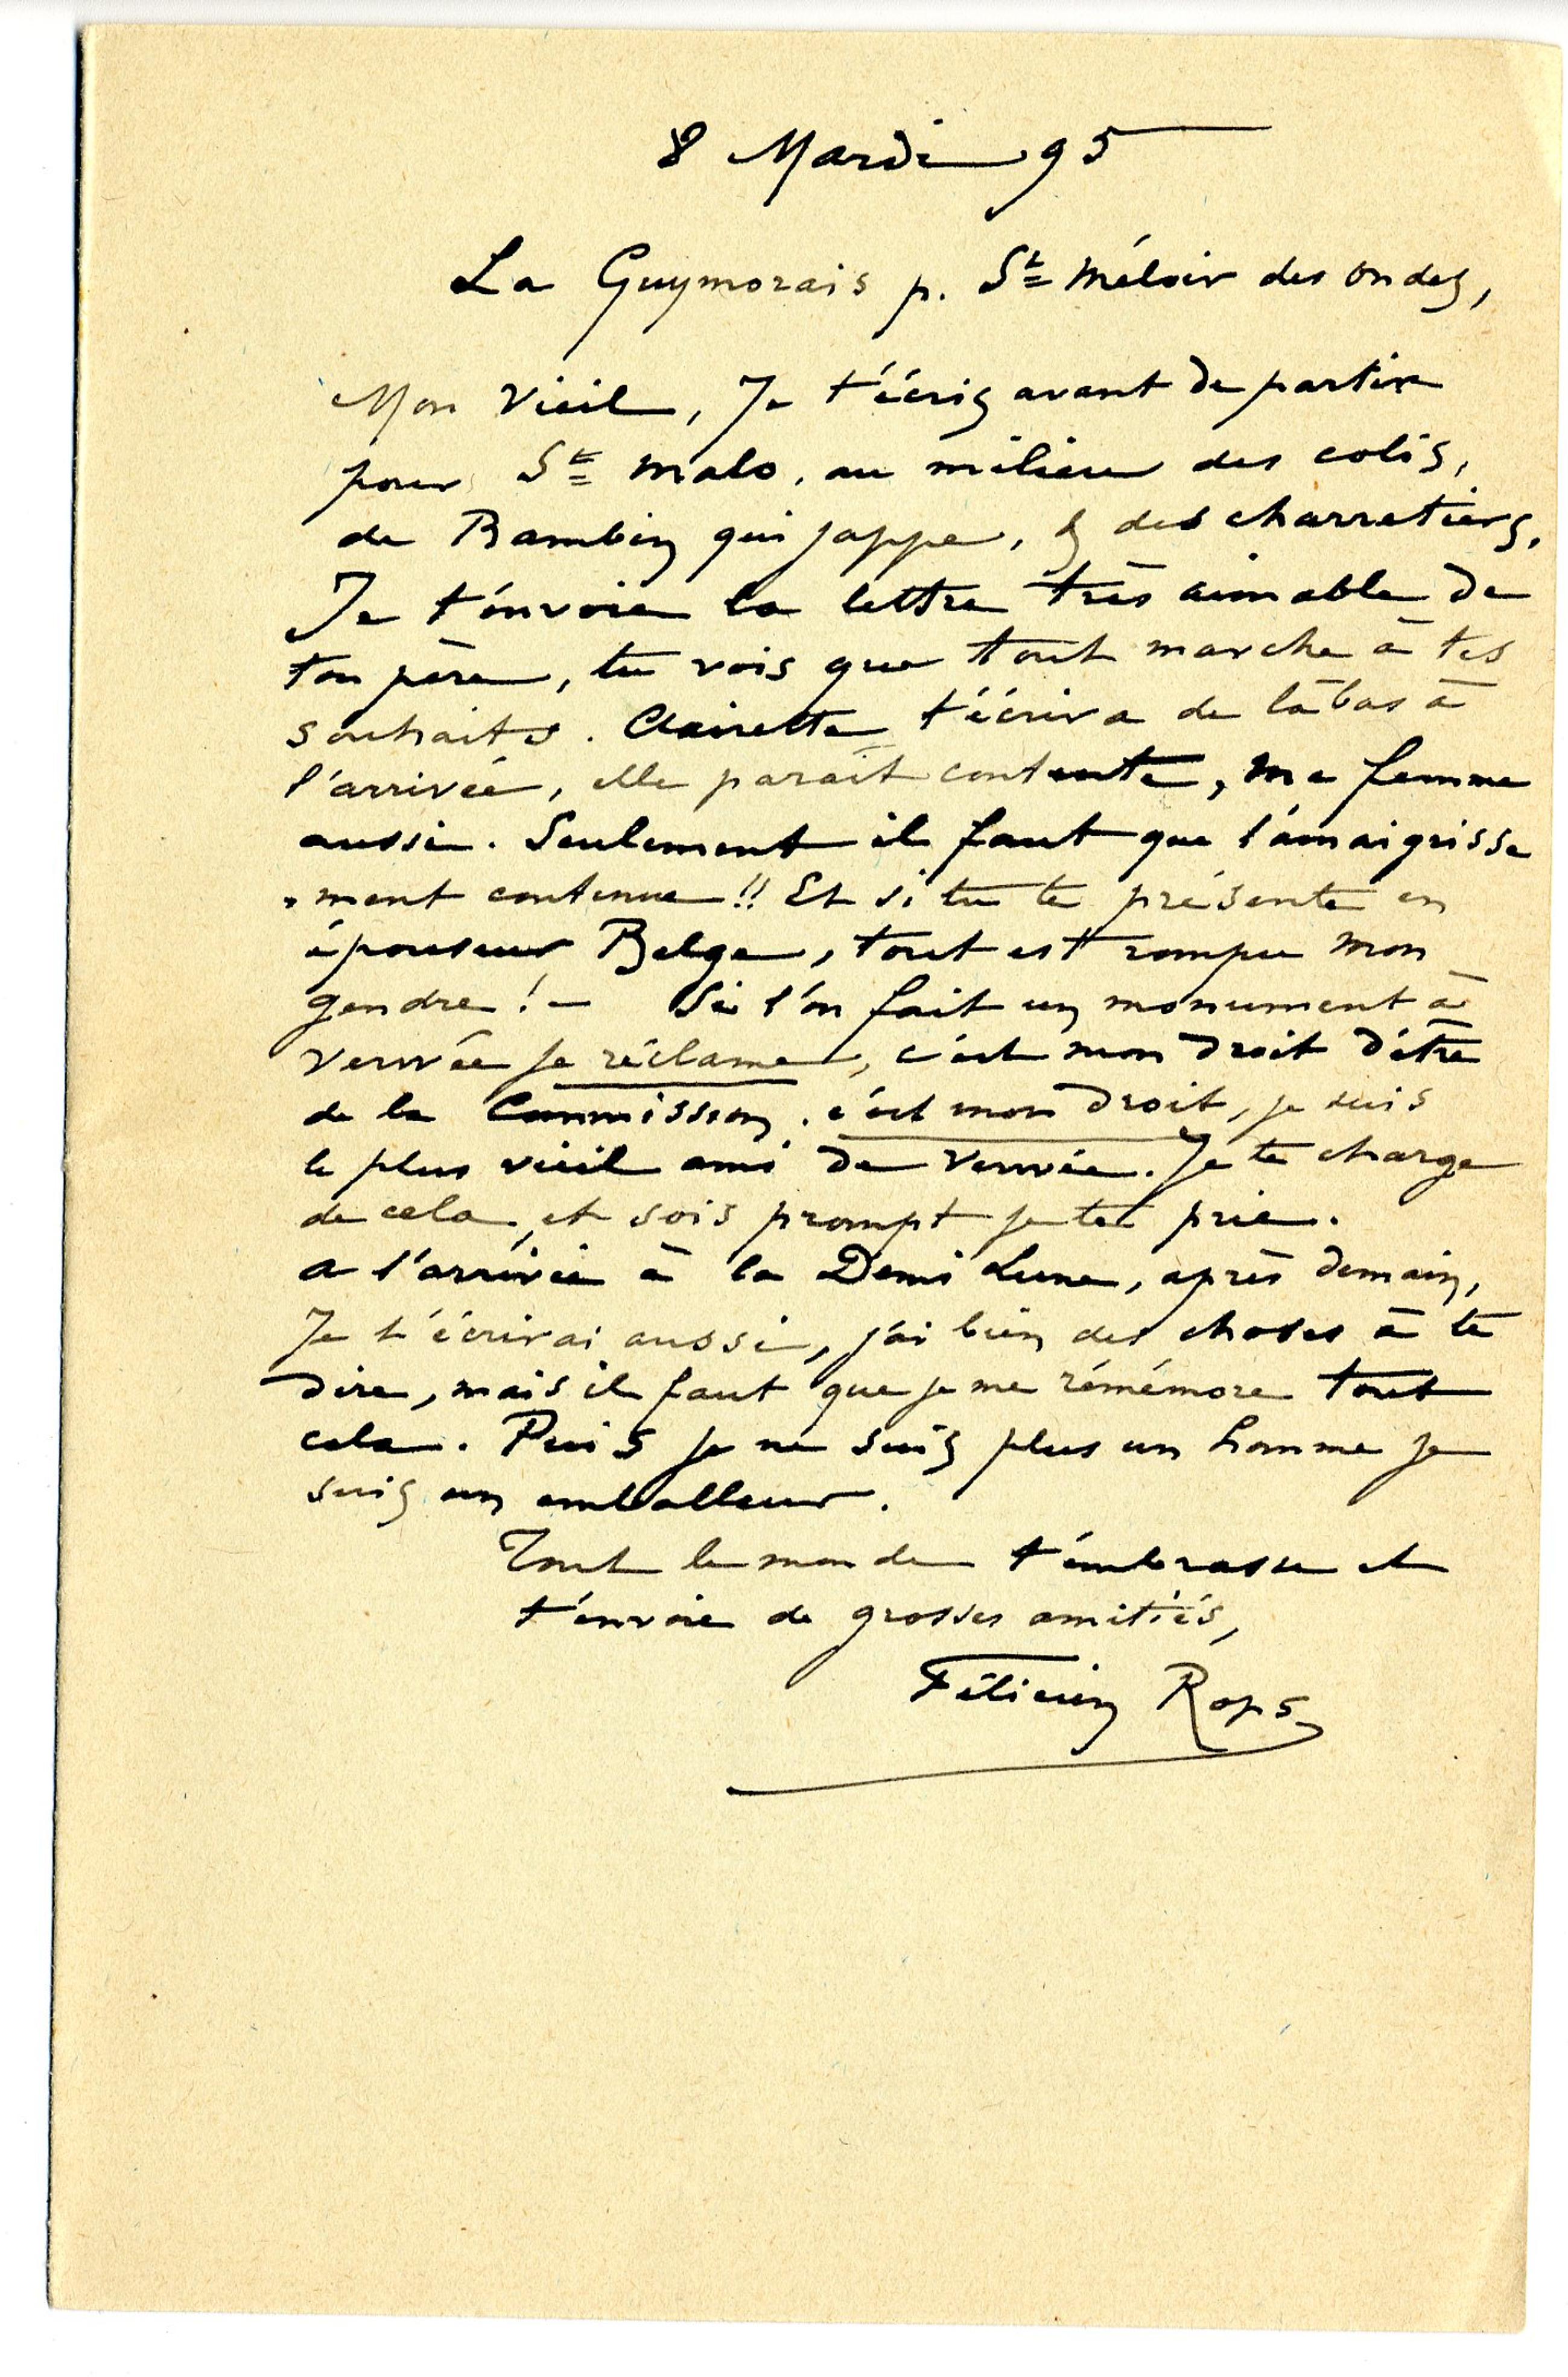 8 Mardi 95
La Guymorais p. St Méloir des Ondes,
Mon Vieil, Je t'écris avant de partir
pour St Malo, au milieu des colis,
de Bambin qui jappe, & des charretiers.
Je t'envoie la lettre très aimable de
ton père, tu vois que tout marche à tes
souhaits. Clairette t'écrira de làbas à
l'arrivée, elle paraît contente, ma femme
aussi. Seulement il faut que l'amaigrisse
-ment continue!! Et si tu te présente en
épouseur Belge, tout est rompu mon
gendre! – Si l'on fait un monument à
Verwée je réclame, c'est mon droit d'être
de la Commission. c'est mon droit, je suis
le plus vieil ami de Verwée. Je te charge
de cela, et sois prompt je te prie.
A l'arrivée à la Demi Lune, après demain,
Je t'écrirai aussi, j'ai bien des choses à te
dire, mais il faut que je me rémémore tout
cela. Puis je ne suis plus un homme je
suis un emballeur.
Tout le monde t'embrasse et
t'envoie de grosses amitiés,
Félicien Rops